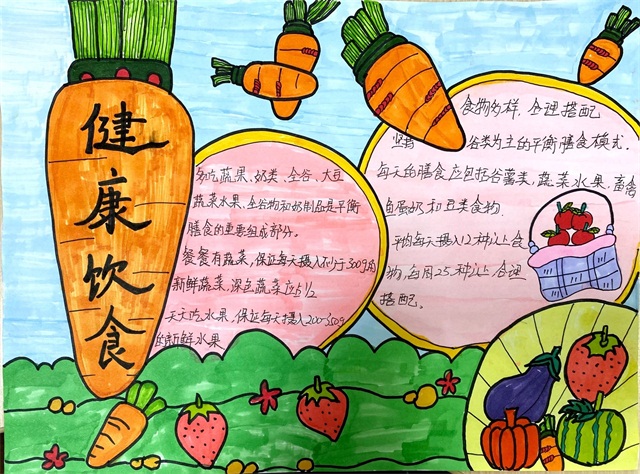 健康饮食
多吃蔬果、奶类、全谷、大豆
蔬菜水果、全谷物和奶制品是平衡
膳食的重要组成部分。
餐餐有蔬菜,保证每天摄入不少于300g的
新鲜蔬菜,深色蔬菜应占1/2
天天吃水果,保证每天摄入200-350g
的新鲜水果
食物多样,合理搭配
坚持谷类为主的平衡膳食模式.
每天的膳食应包括谷薯类,蔬菜水果,畜禽
鱼蛋奶和豆类食物.
平均每天摄入12种以上食
物,每周25种以上合理
搭配。